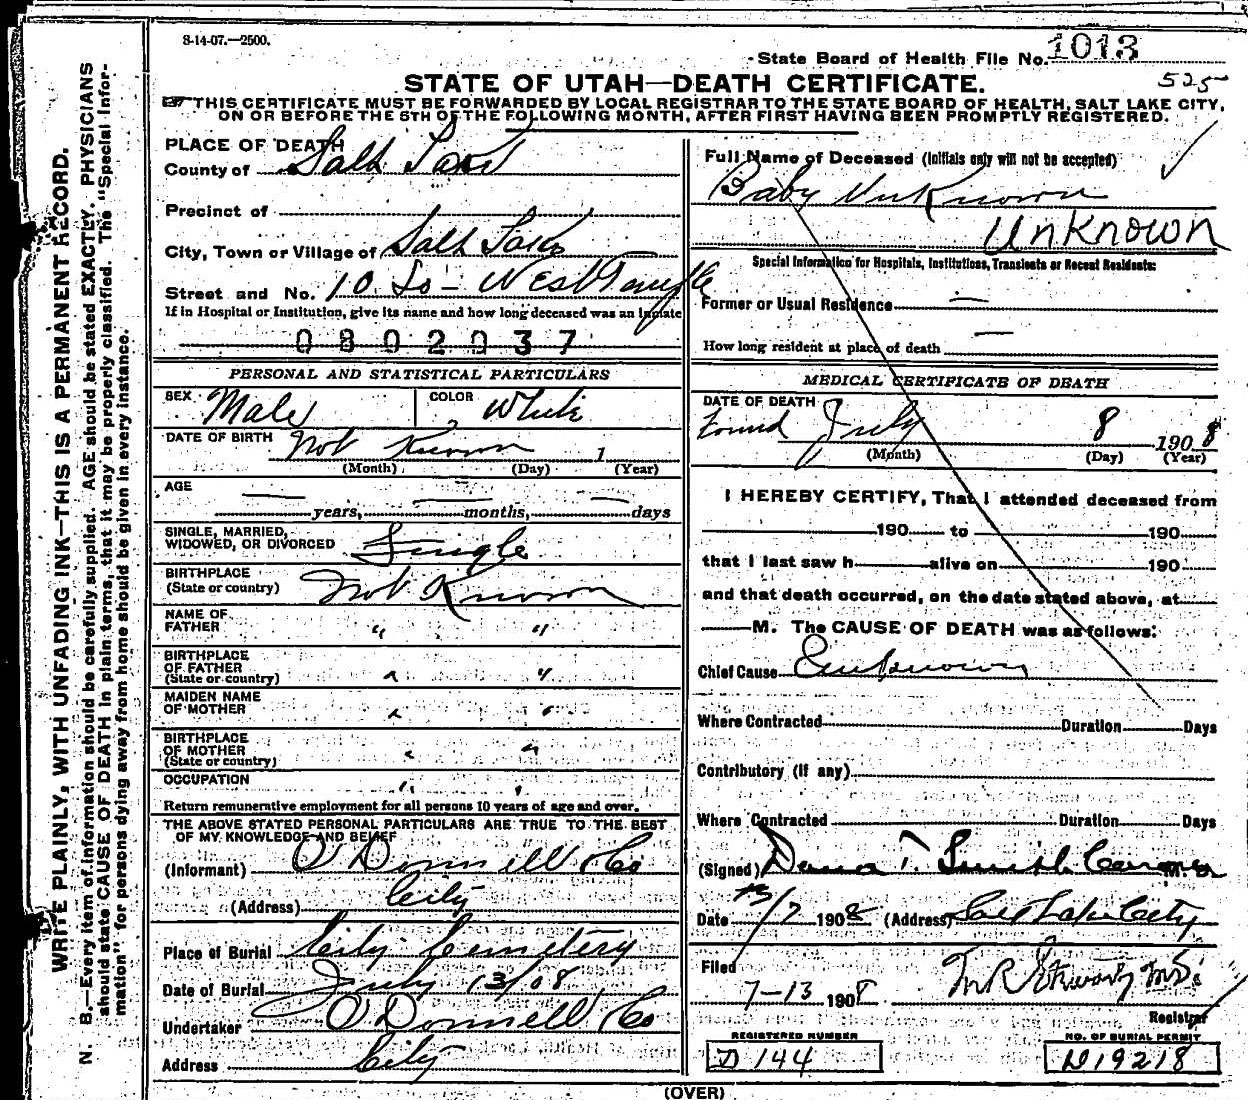 8-14-07.—2500.
State Board of Health File No. 1013
525
STATE OF UTAH—DEATH CERTIFICATE.
THIS CERTIFICATE MUST BE FORWARDED BY LOCAL REGISTRAR TO THE STATE BOARD OF HEALTH, SALT LAKE CITY,
ON OR BEFORE THE 5TH OF THE FOLLOWING MONTH, AFTER FIRST HAVING BEEN PROMPTLY REGISTERED.
WRITE PLAINLY, WITH UNFADING INK—THIS IS A PERMANENT RECORD.
N. B.—Every item of information should be carefully supplied. AGE should be stated EXACTLY. PHYSICIANS
should state CAUSE OF DEATH in plain terms, that it may be properly classified. The "Special Infor-
mation" for persons dying away from home should be given in every instance.
PLACE OF DEATH
County of Salt Lake
Precinct of
City, Town or Village of Salt Lake
Street and No. 10 So - West Temple
If in Hospital or Institution, give its name and how long deceased was an inmate
0802037
PERSONAL AND STATISTICAL PARTICULARS
SEX Male COLOR White
DATE OF BIRTH Not Known 1
(Month) (Day) (Year)
AGE
— years, — months, — days
SINGLE, MARRIED,
WIDOWED, OR DIVORCED Single
BIRTHPLACE
(State or country) Not Known
NAME OF
FATHER " "
BIRTHPLACE
OF FATHER
(State or country) " "
MAIDEN NAME
OF MOTHER " "
BIRTHPLACE
OF MOTHER
(State or country) " "
OCCUPATION " "
Return remunerative employment for all persons 10 years of age and over.
THE ABOVE STATED PERSONAL PARTICULARS ARE TRUE TO THE BEST
OF MY KNOWLEDGE AND BELIEF
(Informant) O'Donnell & Co
(Address) City
Place of Burial City Cemetery
Date of Burial July 13/08
Undertaker O'Donnell & Co
Address City
Full Name of Deceased (Initials only will not be accepted)
Baby Unknown
Unknown
Special Information for Hospitals, Institutions, Transients or Recent Residents:
Former or Usual Residence —
How long resident at place of death —
MEDICAL CERTIFICATE OF DEATH
DATE OF DEATH
Found July 8 1908
(Month) (Day) (Year)
I HEREBY CERTIFY, That I attended deceased from
190 to 190
that I last saw h alive on 190
and that death occurred, on the date stated above, at
M. The CAUSE OF DEATH was as follows:
Chief Cause Unknown
Where Contracted Duration Days
Contributory (if any)
Where Contracted Duration Days
(Signed) Dana T. Smith Coroner M. D
Date 13/7 1908 (Address) Salt Lake City
Filed
7-13 1908 M R Stewart MD
Registrar
REGISTERED NUMBER
D 144
NO. OF BURIAL PERMIT
D19218
(OVER)